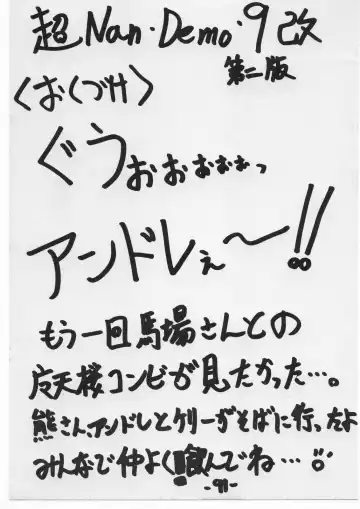 超Nan・Demo・9改
第二版
〈おくづけ〉
ぐうぉぉぉぉぉっ
アンドレぇ〜!!
もう一回馬場さんとの
天桜コンビが見たかった…。
熊さん、アンドレとケリーがそばに行ったよ
みんなで仲よく飲んでね…
-911-